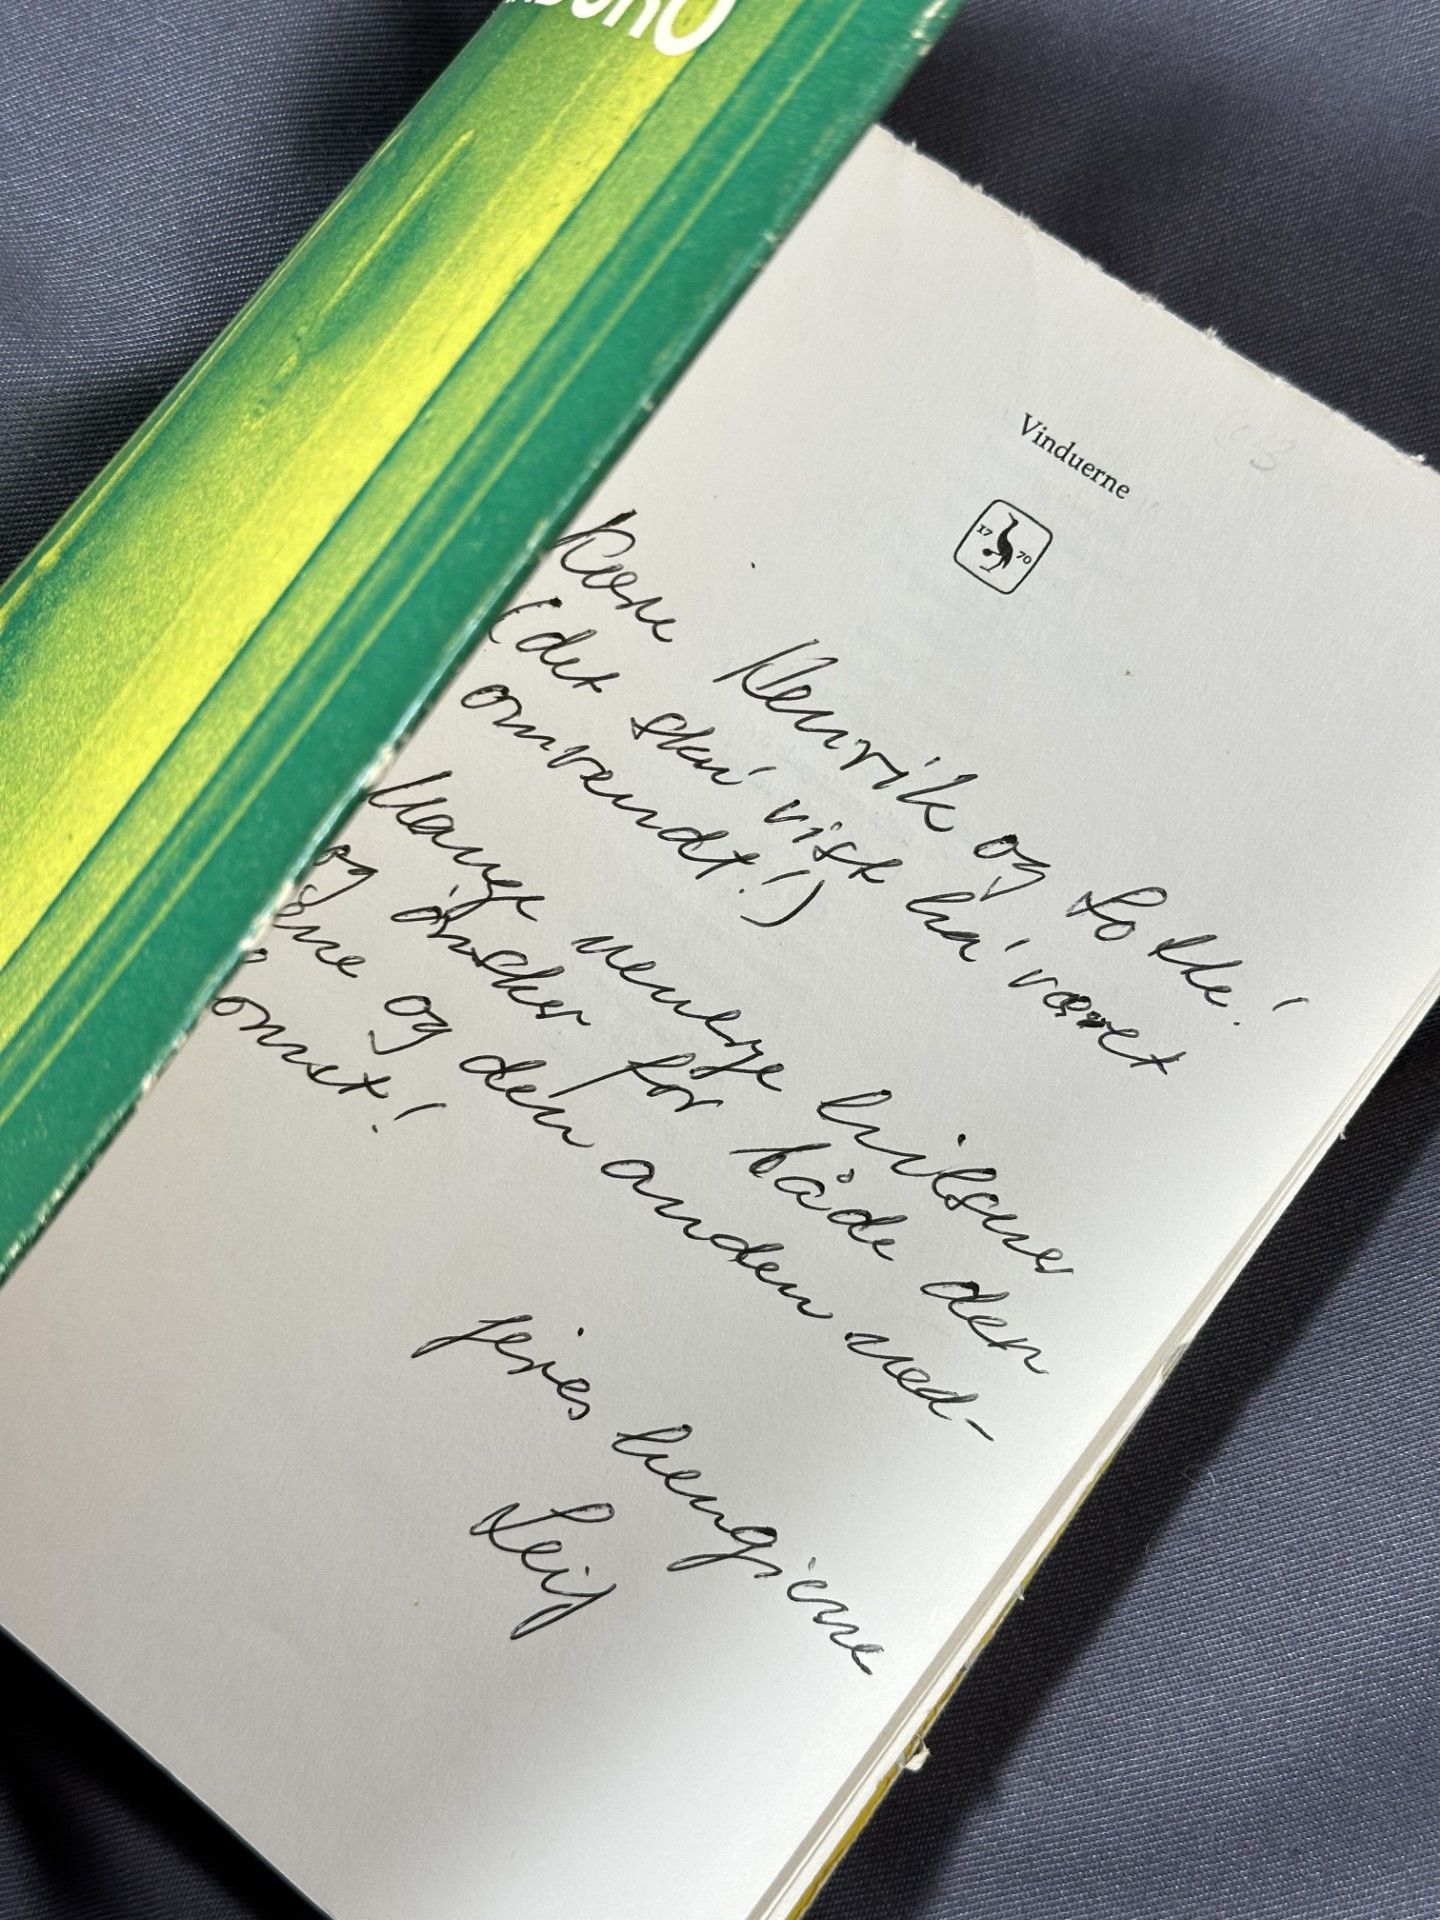 DURO
Vinduerne
17 70
Kære Henrik og Lotte!
(det sku' vist ha' været
omvendt!)
Mange hilsner
og ønsker for både den
ene og den anden ned-
omst!
jeres hengivne
Leif